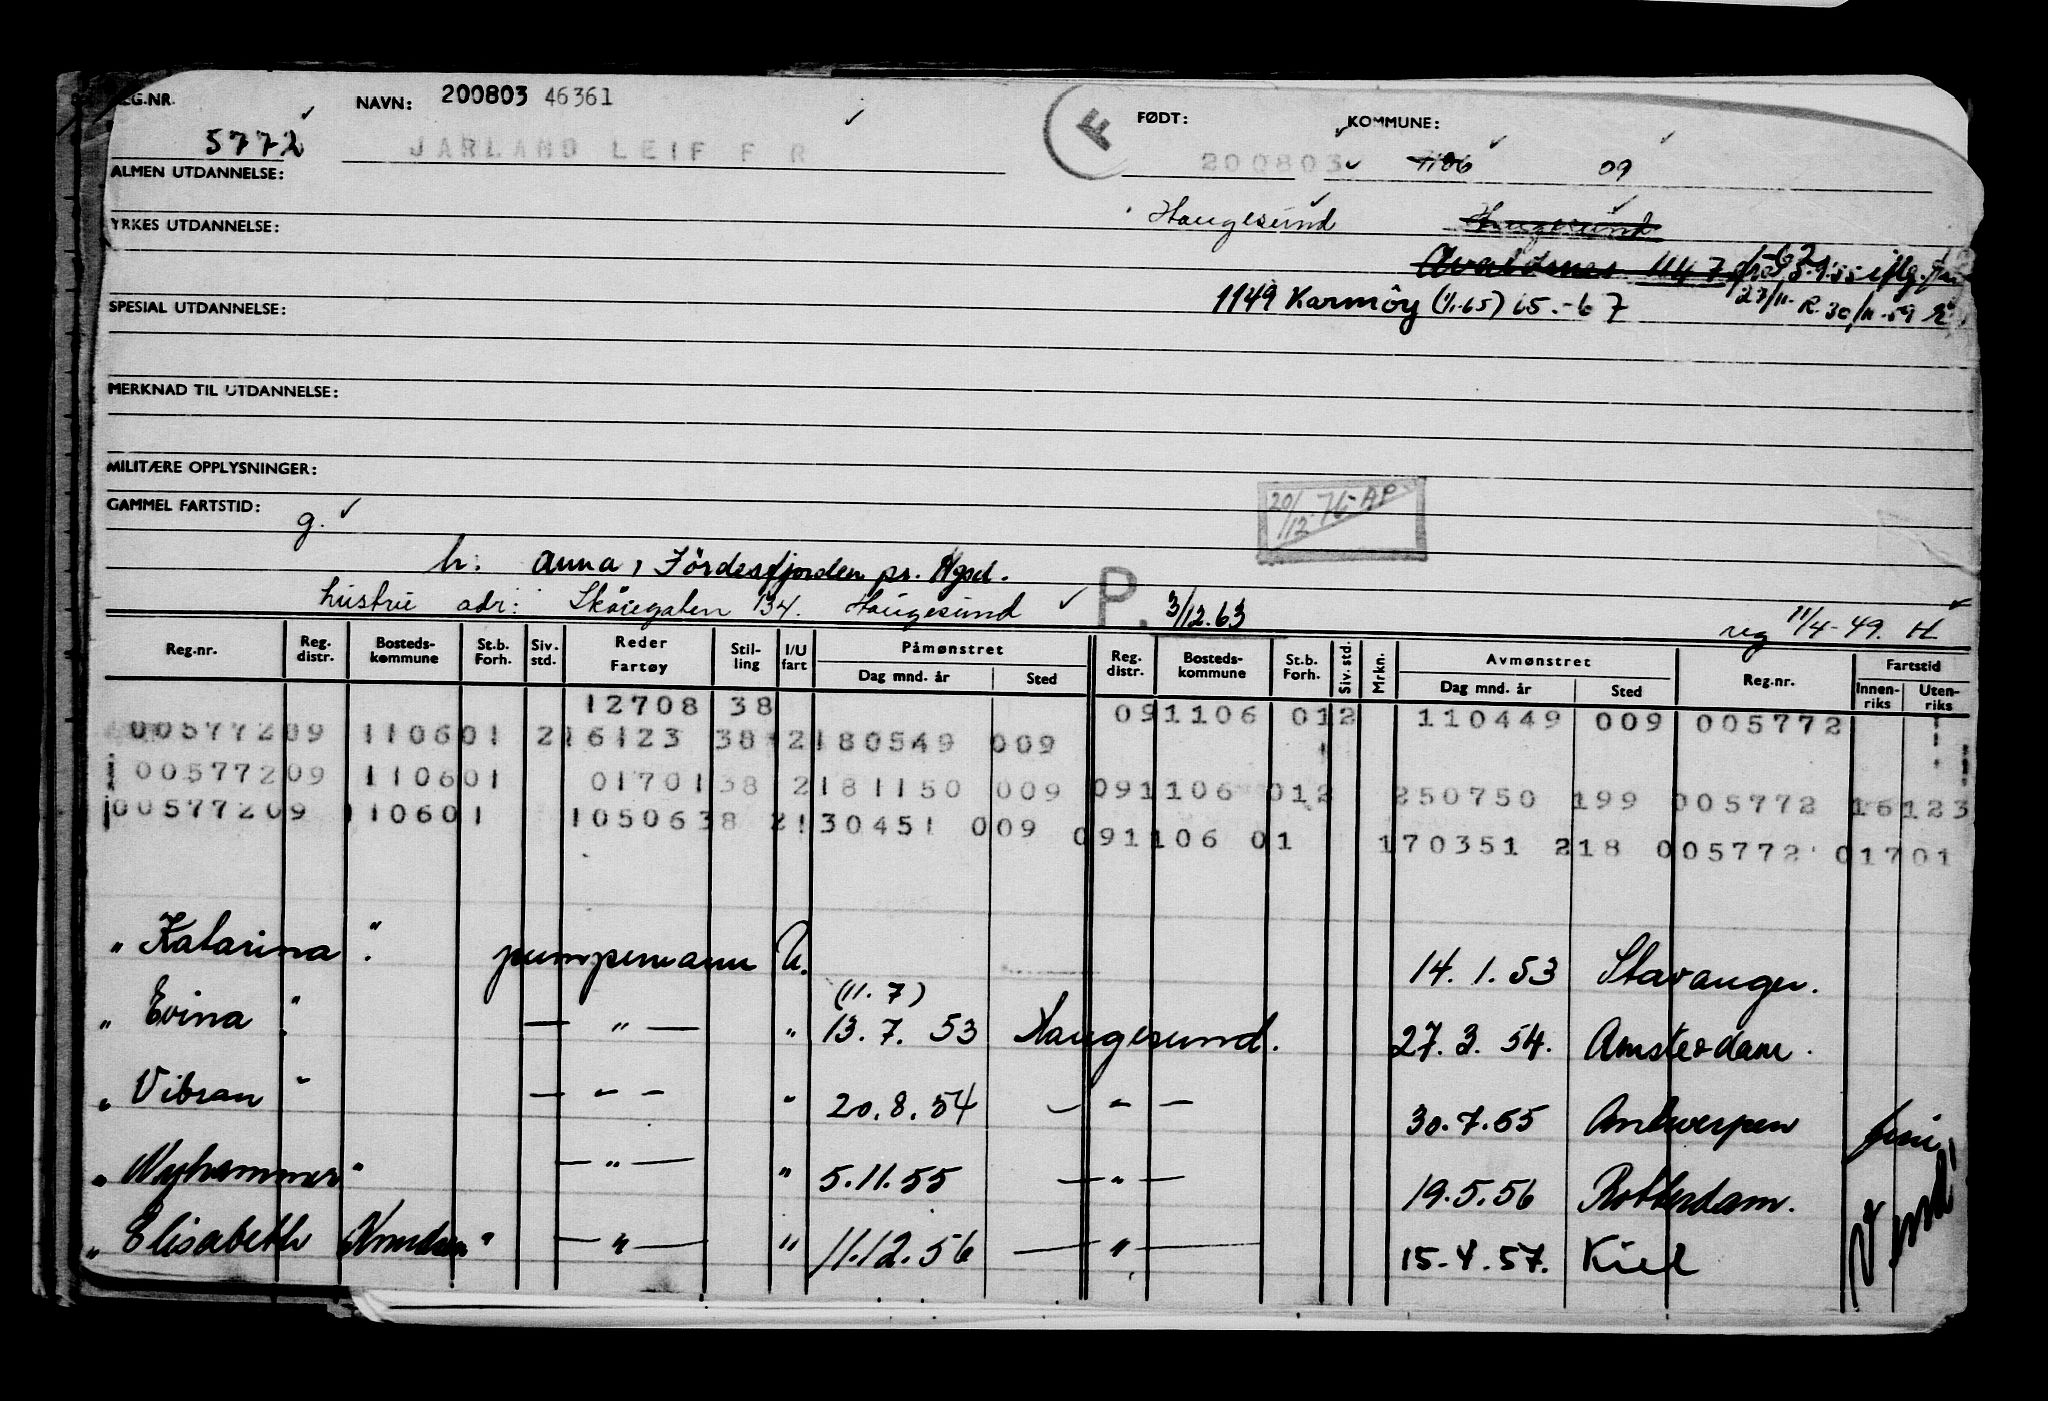 REG.NR. NAVN: 200803 46361 F FØDT: KOMMUNE:
5772 JARLAND LEIF F R 200803 1106 09
ALMEN UTDANNELSE:
Haugesund Haugesund
YRKES UTDANNELSE:
Avaldsnes 1147
1149 Karmöy (1/1-65) 65.-67
27/11- R. 30/11-59
SPESIAL UTDANNELSE:
MERKNAD TIL UTDANNELSE:
MILITÆRE OPPLYSNINGER:
GAMMEL FARTSTID:
g.
20/12-76-AP
h: Anna, Fördesfjorden pr. Hgsd.
hustru adr: Skåregaten 134. Haugesund P. 3/12.63
reg 11/4-49. H
Reg.nr. Reg. distr. Bosteds-kommune St.b. Forh. Siv. std. Reder Fartøy Stil-ling I/U fart Påmønstret Dag mnd. år Sted Reg. distr. Bosteds-kommune St.b. Forh. Siv. std. Mrkn. Avmønstret Dag mnd. år Sted Reg.nr. Fartstid Innen-riks Uten-riks
12708 38 091106 012 110449 009 005772
00577209 110601 216123 38 2180549 009
00577209 110601 01701 38 2181150 009 091106 012 250750 199 005772 16123
00577209 110601 10506 38 2130451 009 091106 01 170351 218 005772 01701
" Katarina " pumpemann U. 14.1.53 Stavanger.
(11.7)
" Evina " — " — " 13.7.53 Haugesund. 27.3.54. Amsterdam.
" Vibran " — " — " 20.8.54 — " — 30.7.55 Antwerpen
" Nyhammer " — " — " 5.11.55 — " — 19.5.56 Rotterdam.
" Elisabeth Knudsen " — " — " 11.12.56 — " — 15.4.57. Kiel